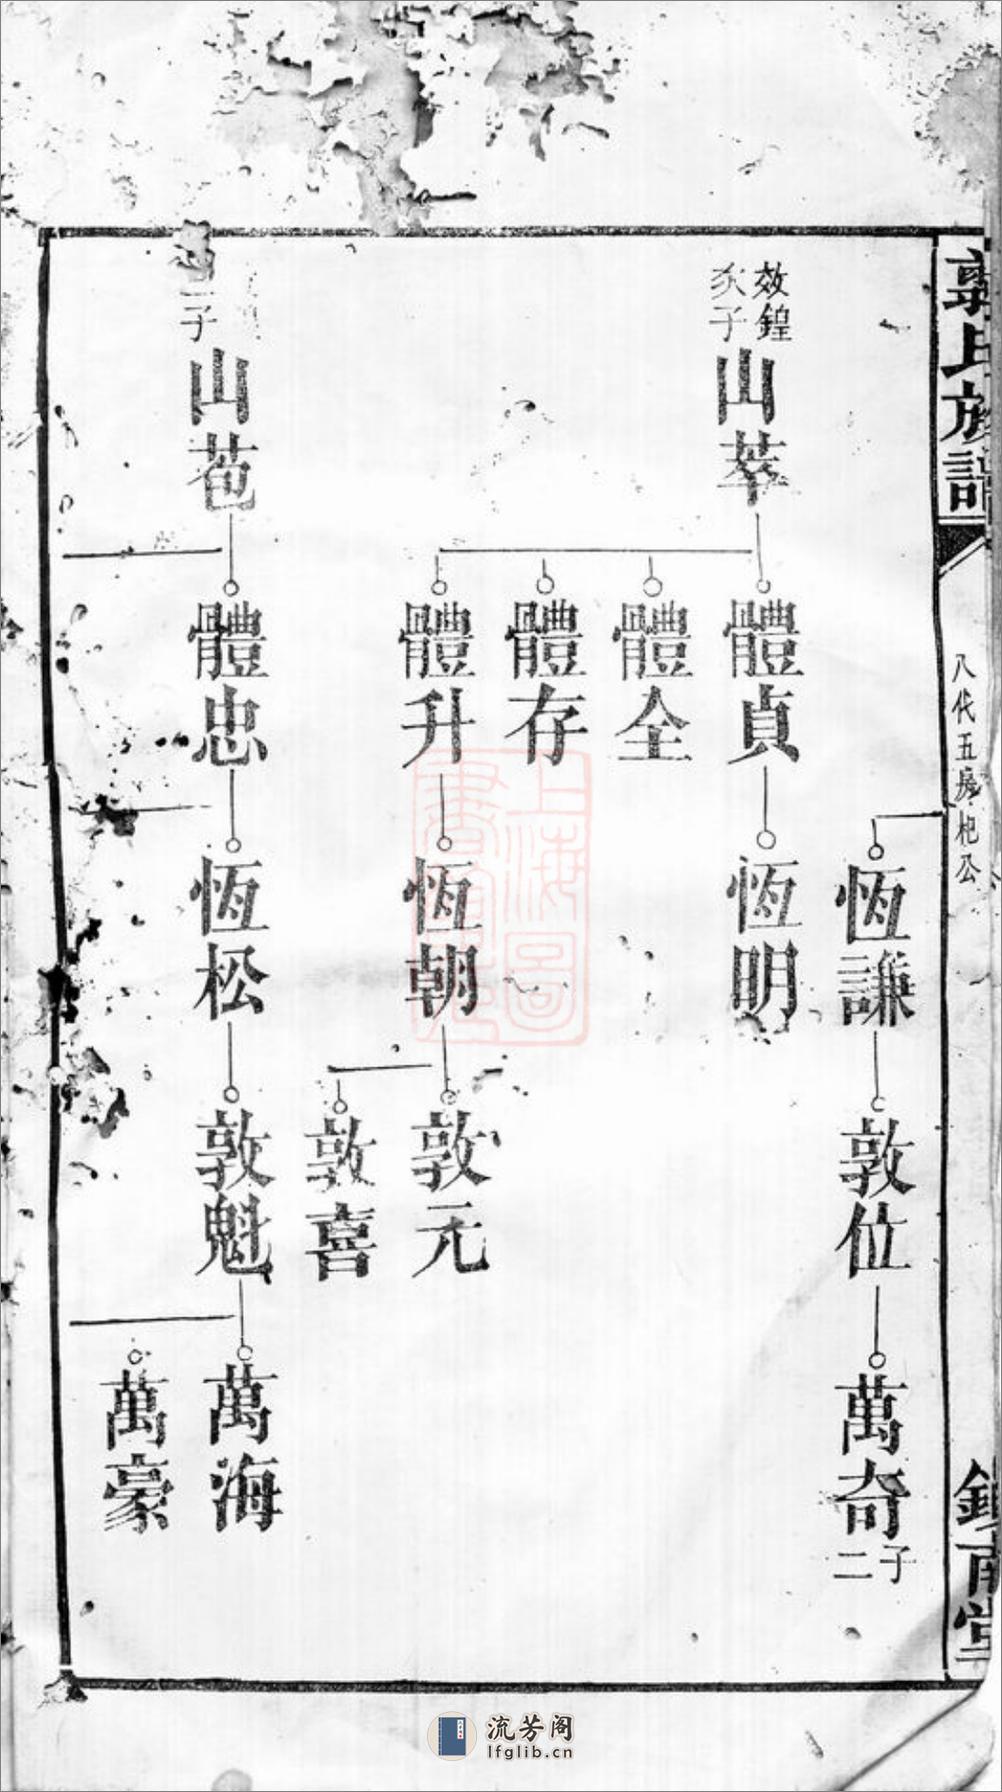 郭氏族譜
八代五房杞公
錦南堂
恆謙
敦位
萬奇
子二
效鍠
次子
山萃
體貞
體全
體存
體升
恆明
恆朝
敦元
敦喜
二子
山苞
體忠
恆松
敦魁
萬海
萬豪
上海圖
書館藏
流芳阁
lfglib.cn